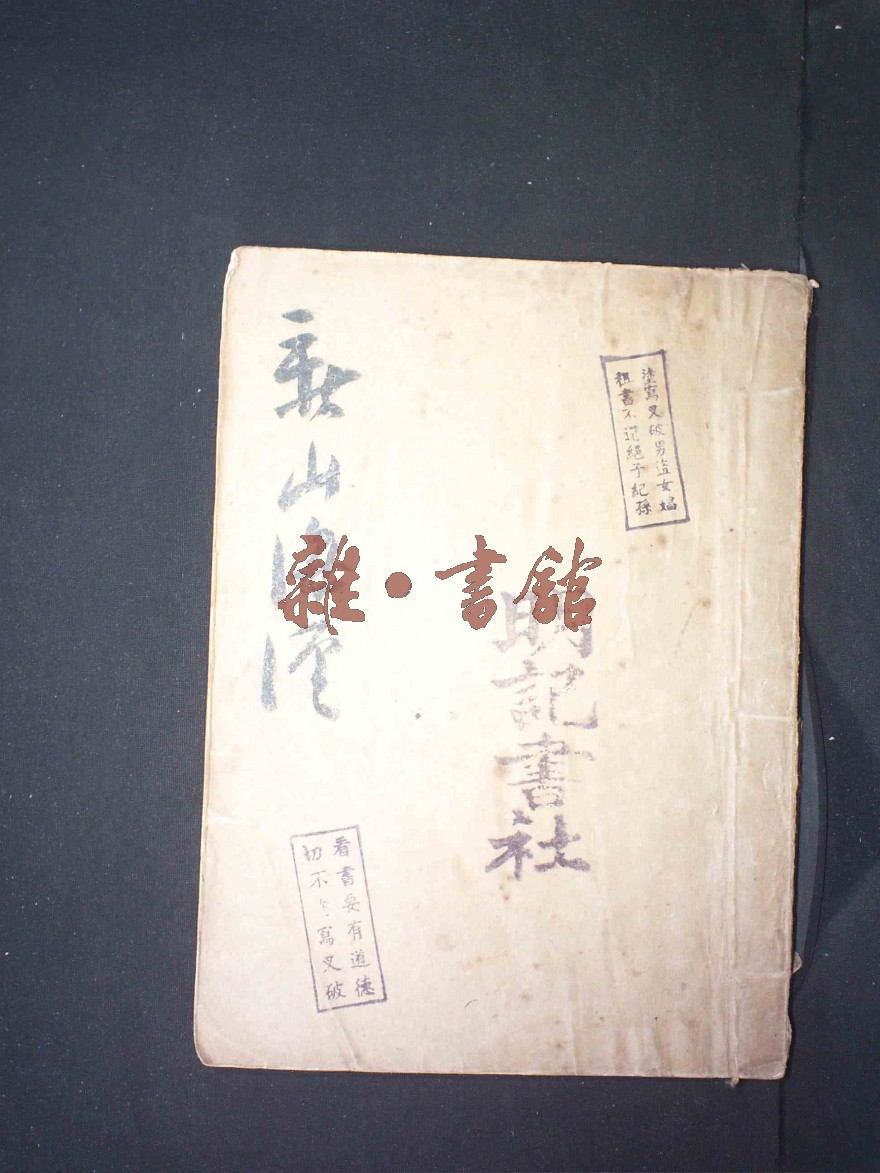 塗寫叉破男盜女娼
租書不還絕子紀孫
明記書社
雜•書館
山
看書要有道德
切不寫叉破